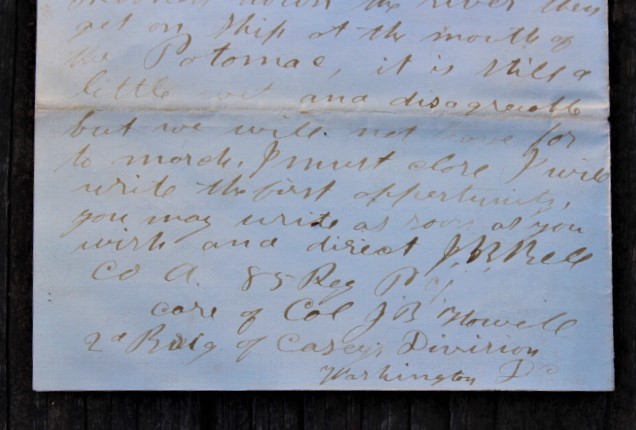 down the river then
get on ship at the mouth of
the Potomac, it is still a
little wet and disagreeable
but we will not have far
to march. I must close I will
write the first oppertunity,
you may write as soon as you
wish and direct J. B. Bell
Co A. 85 Reg P V
care of Col J B Howell
2d Brig of Casey's Division
Washington D C